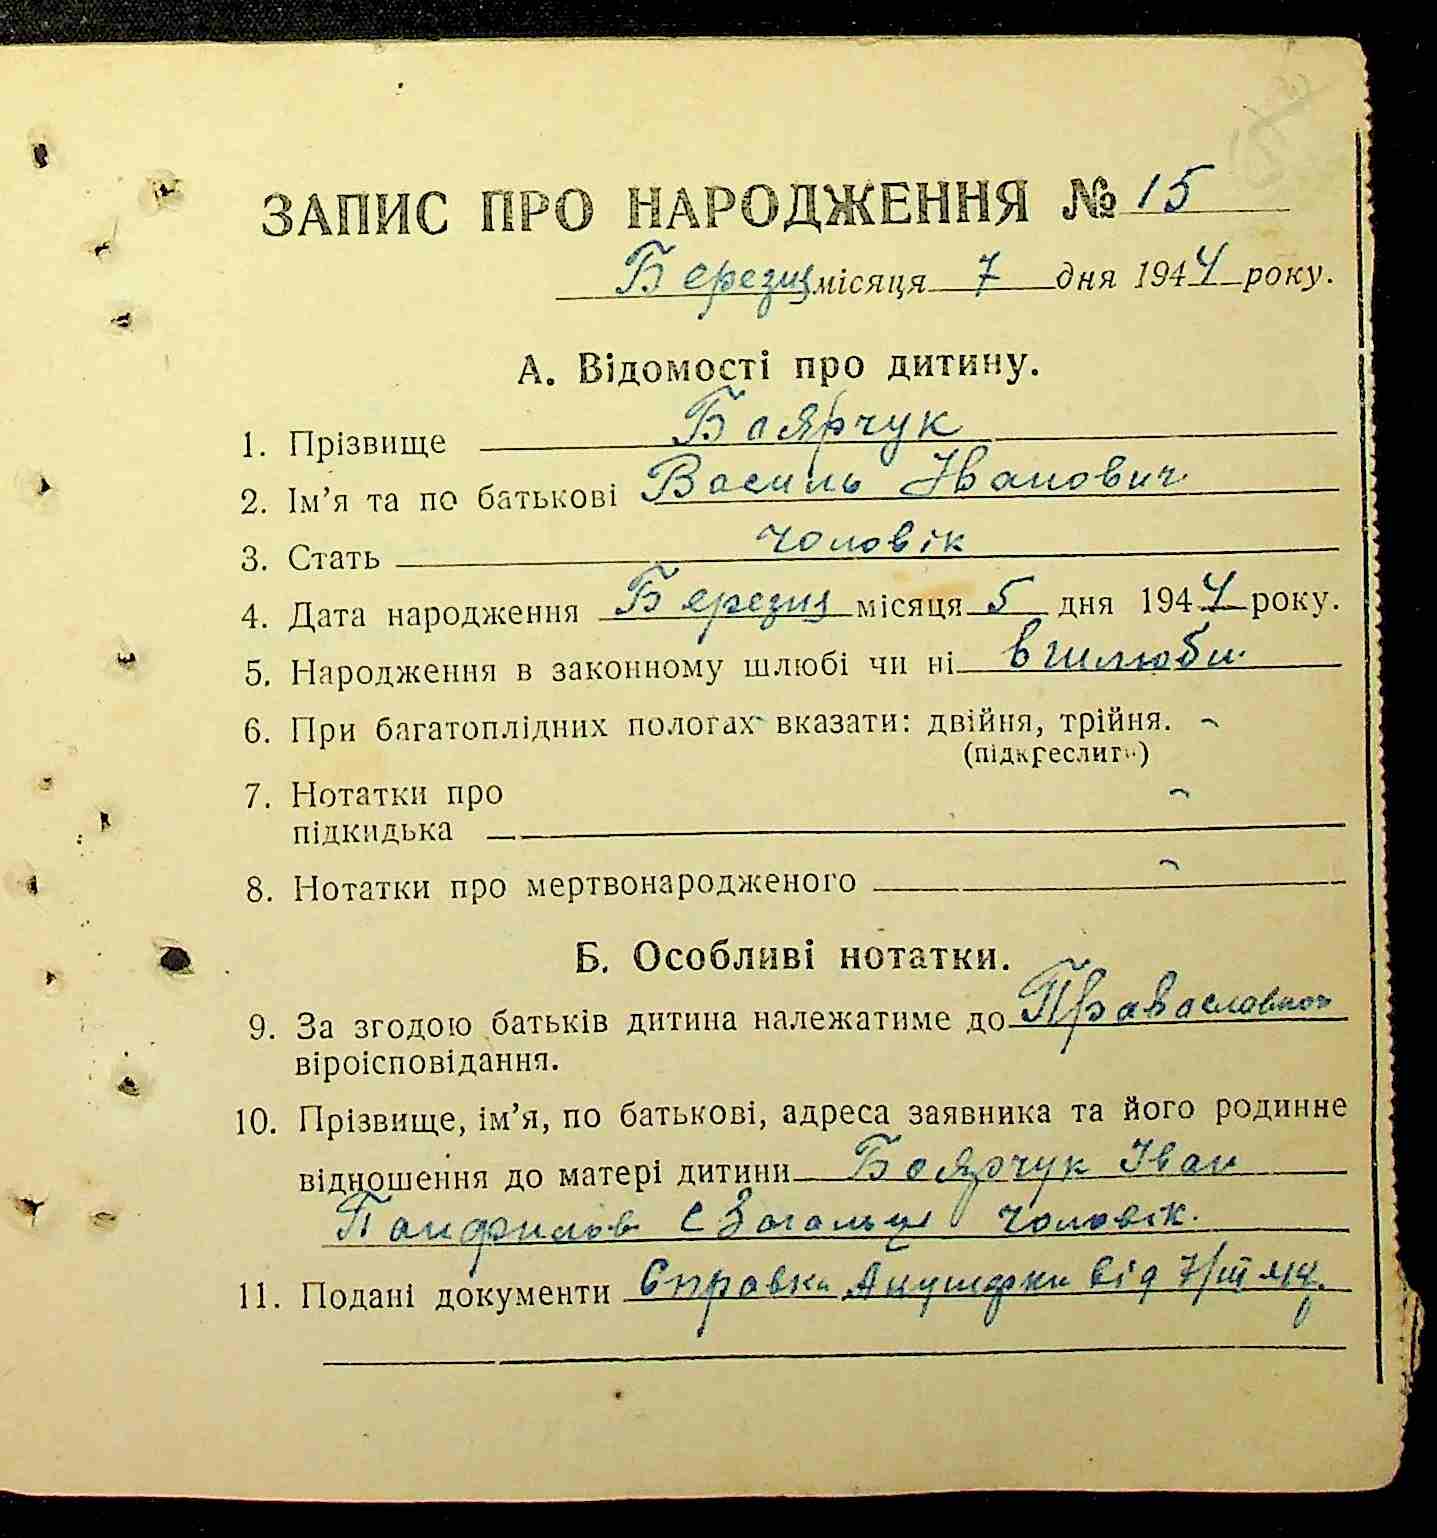 ЗАПИС ПРО НАРОДЖЕННЯ № 15
Березня місяця 7 дня 1944 року.
А. Відомості про дитину.
1. Прізвище Боярчук
2. Ім’я та по батькові Василь Іванович
3. Стать чоловік
4. Дата народження Березня місяця 5 дня 1944 року.
5. Народження в законному шлюбі чи ні в шлюби
6. При багатоплідних пологах вказати: двійня, трійня. ~
(підкреслити)
7. Нотатки про ~
підкидька
8. Нотатки про мертвонародженого ~
Б. Особливі нотатки.
9. За згодою батьків дитина належатиме до Православного
віроісповідання.
10. Прізвище, ім’я, по батькові, адреса заявника та його родинне
відношення до матері дитини Боярчук Іван
Панфилов с Загальці чоловік.
11. Подані документи Справка Акушерки від 7/III 44р.